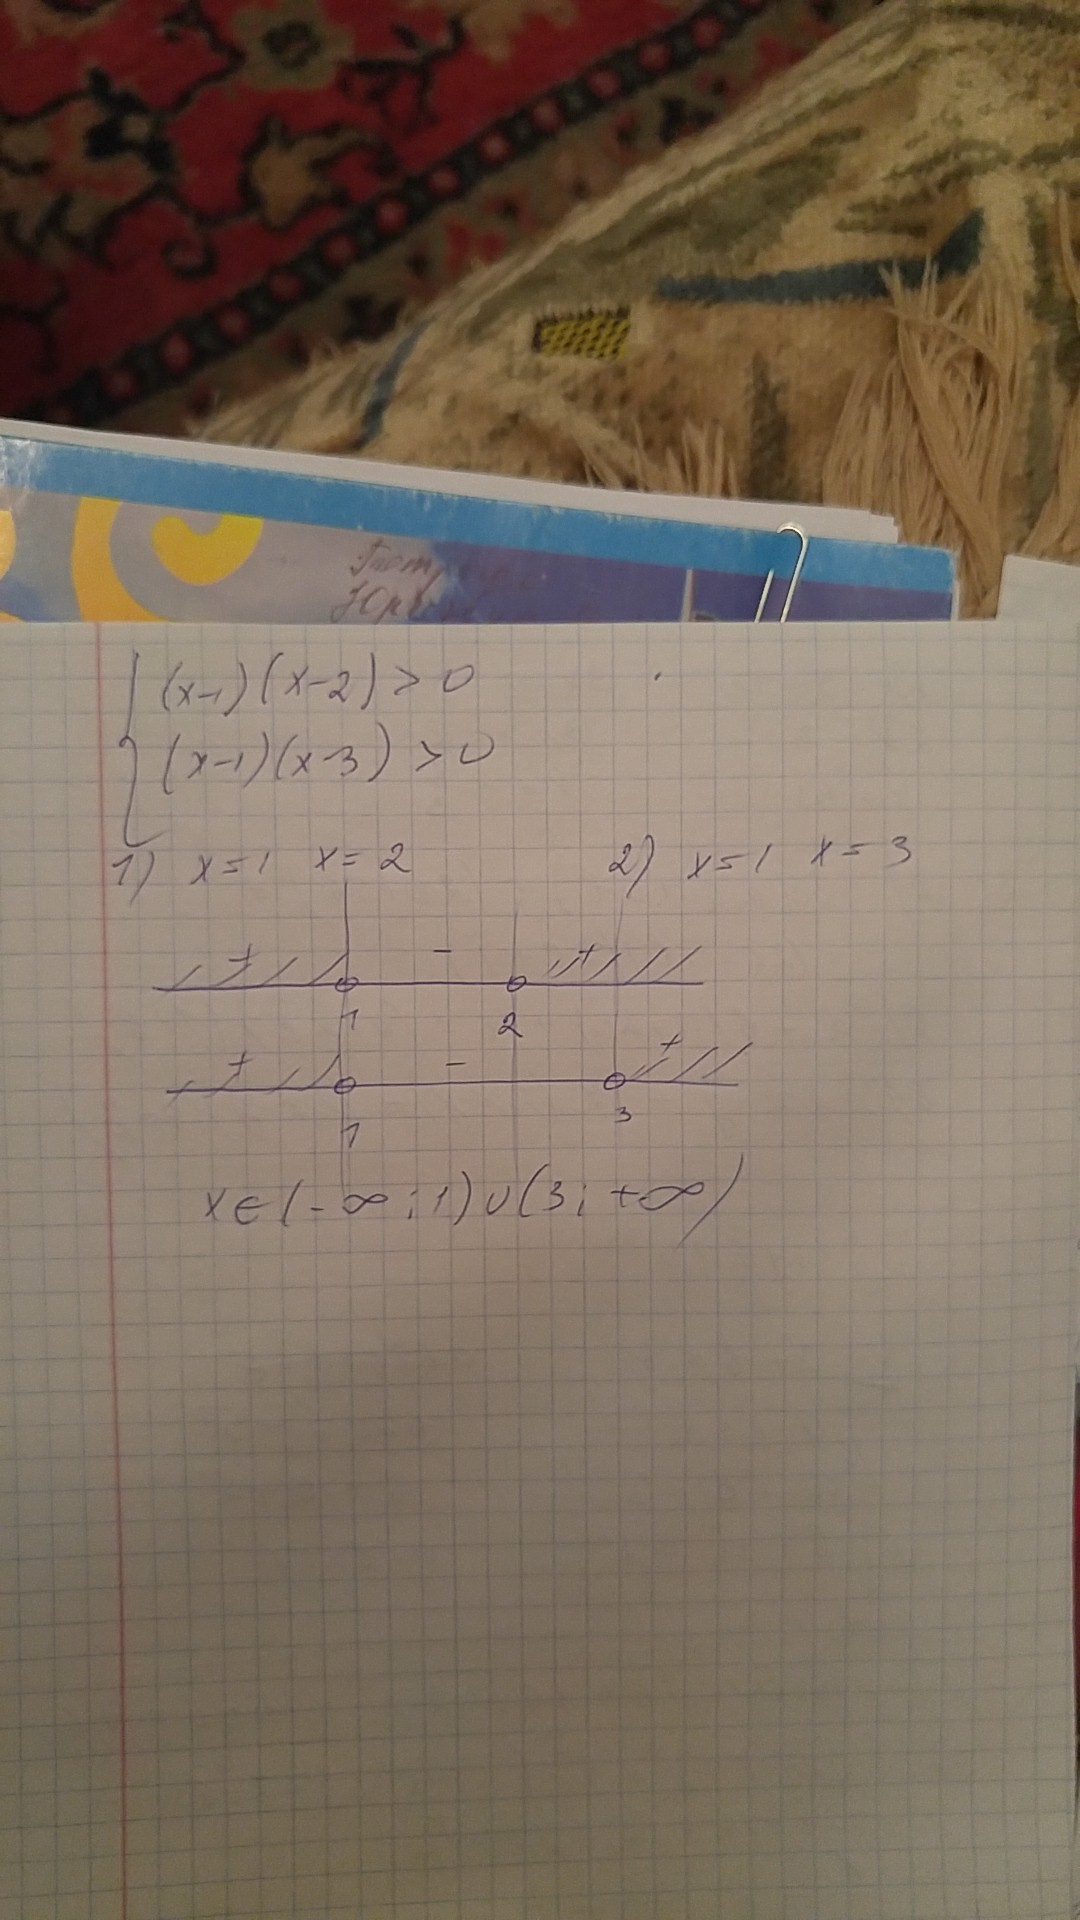 (x-1)(x-2) > 0
(x-1)(x-3) > 0
1) x=1 x=2 2) x=1 x=3
+ - +
1 2
+ - +
1 3
x∈(-∞;1)∪(3;+∞)